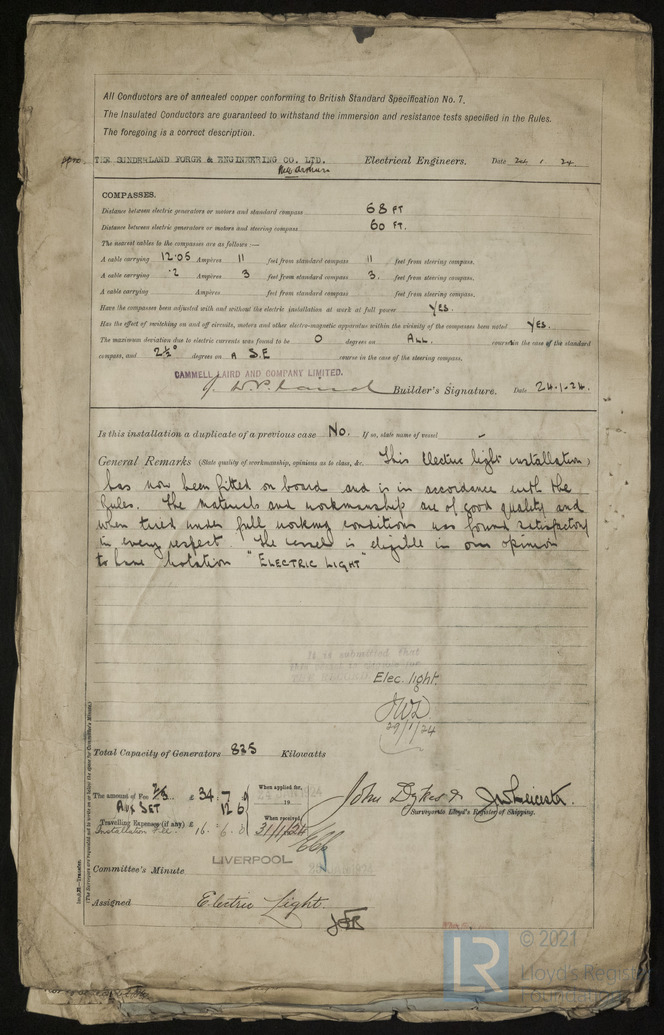 All Conductors are of annealed copper conforming to British Standard Specification No. 7.
The Insulated Conductors are guaranteed to withstand the immersion and resistance tests specified in the Rules.
The foregoing is a correct description.
THE SUNDERLAND FORGE & ENGINEERING CO. LTD. Electrical Engineers. Date 24 . 1 . 24.
COMPASSES.
Distance between electric generators or motors and standard compass 68 FT
Distance between electric generators or motors and steering compass 60 FT.
The nearest cables to the compasses are as follows :—
A cable carrying 12.05 Ampères 11 feet from standard compass 11 feet from steering compass.
A cable carrying .2 Ampères 3 feet from standard compass 3. feet from steering compass.
A cable carrying Ampères feet from standard compass feet from steering compass.
Have the compasses been adjusted with and without the electric installation at work at full power YES.
Has the effect of switching on and off circuits, motors and other electro-magnetic apparatus within the vicinity of the compasses been noted YES.
The maximum deviation due to electric currents was found to be 0 degrees on ALL. course in the case of the standard
compass, and 2½° degrees on A S.E course in the case of the steering compass.
CAMMELL LAIRD AND COMPANY LIMITED.
Builder's Signature. Date 24.1.24.
Is this installation a duplicate of a previous case No. If so, state name of vessel –
General Remarks (State quality of workmanship, opinions as to class, &c. This Electric light installation
has now been fitted on board and is in accordance with the
Rules. The materials and workmanship are of good quality and
when tried under full working conditions was found satisfactory
in every respect. The vessel is eligible in our opinion
to have Notation "ELECTRIC LIGHT"
It is submitted that
Elec. light.
JWD
29/1/24
Total Capacity of Generators 835 Kilowatts
The amount of Fee £ 34 . 7 . When applied for,
AUX SET 12 6 19
Travelling Expenses (if any) £ When received,
Installation Fee. 16 . 6 . 0 31/1/24
John Dykes & J. W. Leicester.
Surveyor to Lloyd's Register of Shipping.
LIVERPOOL
Committee's Minute
Assigned Electric Light.
LR © 2021
Lloyd's Register
Foundation